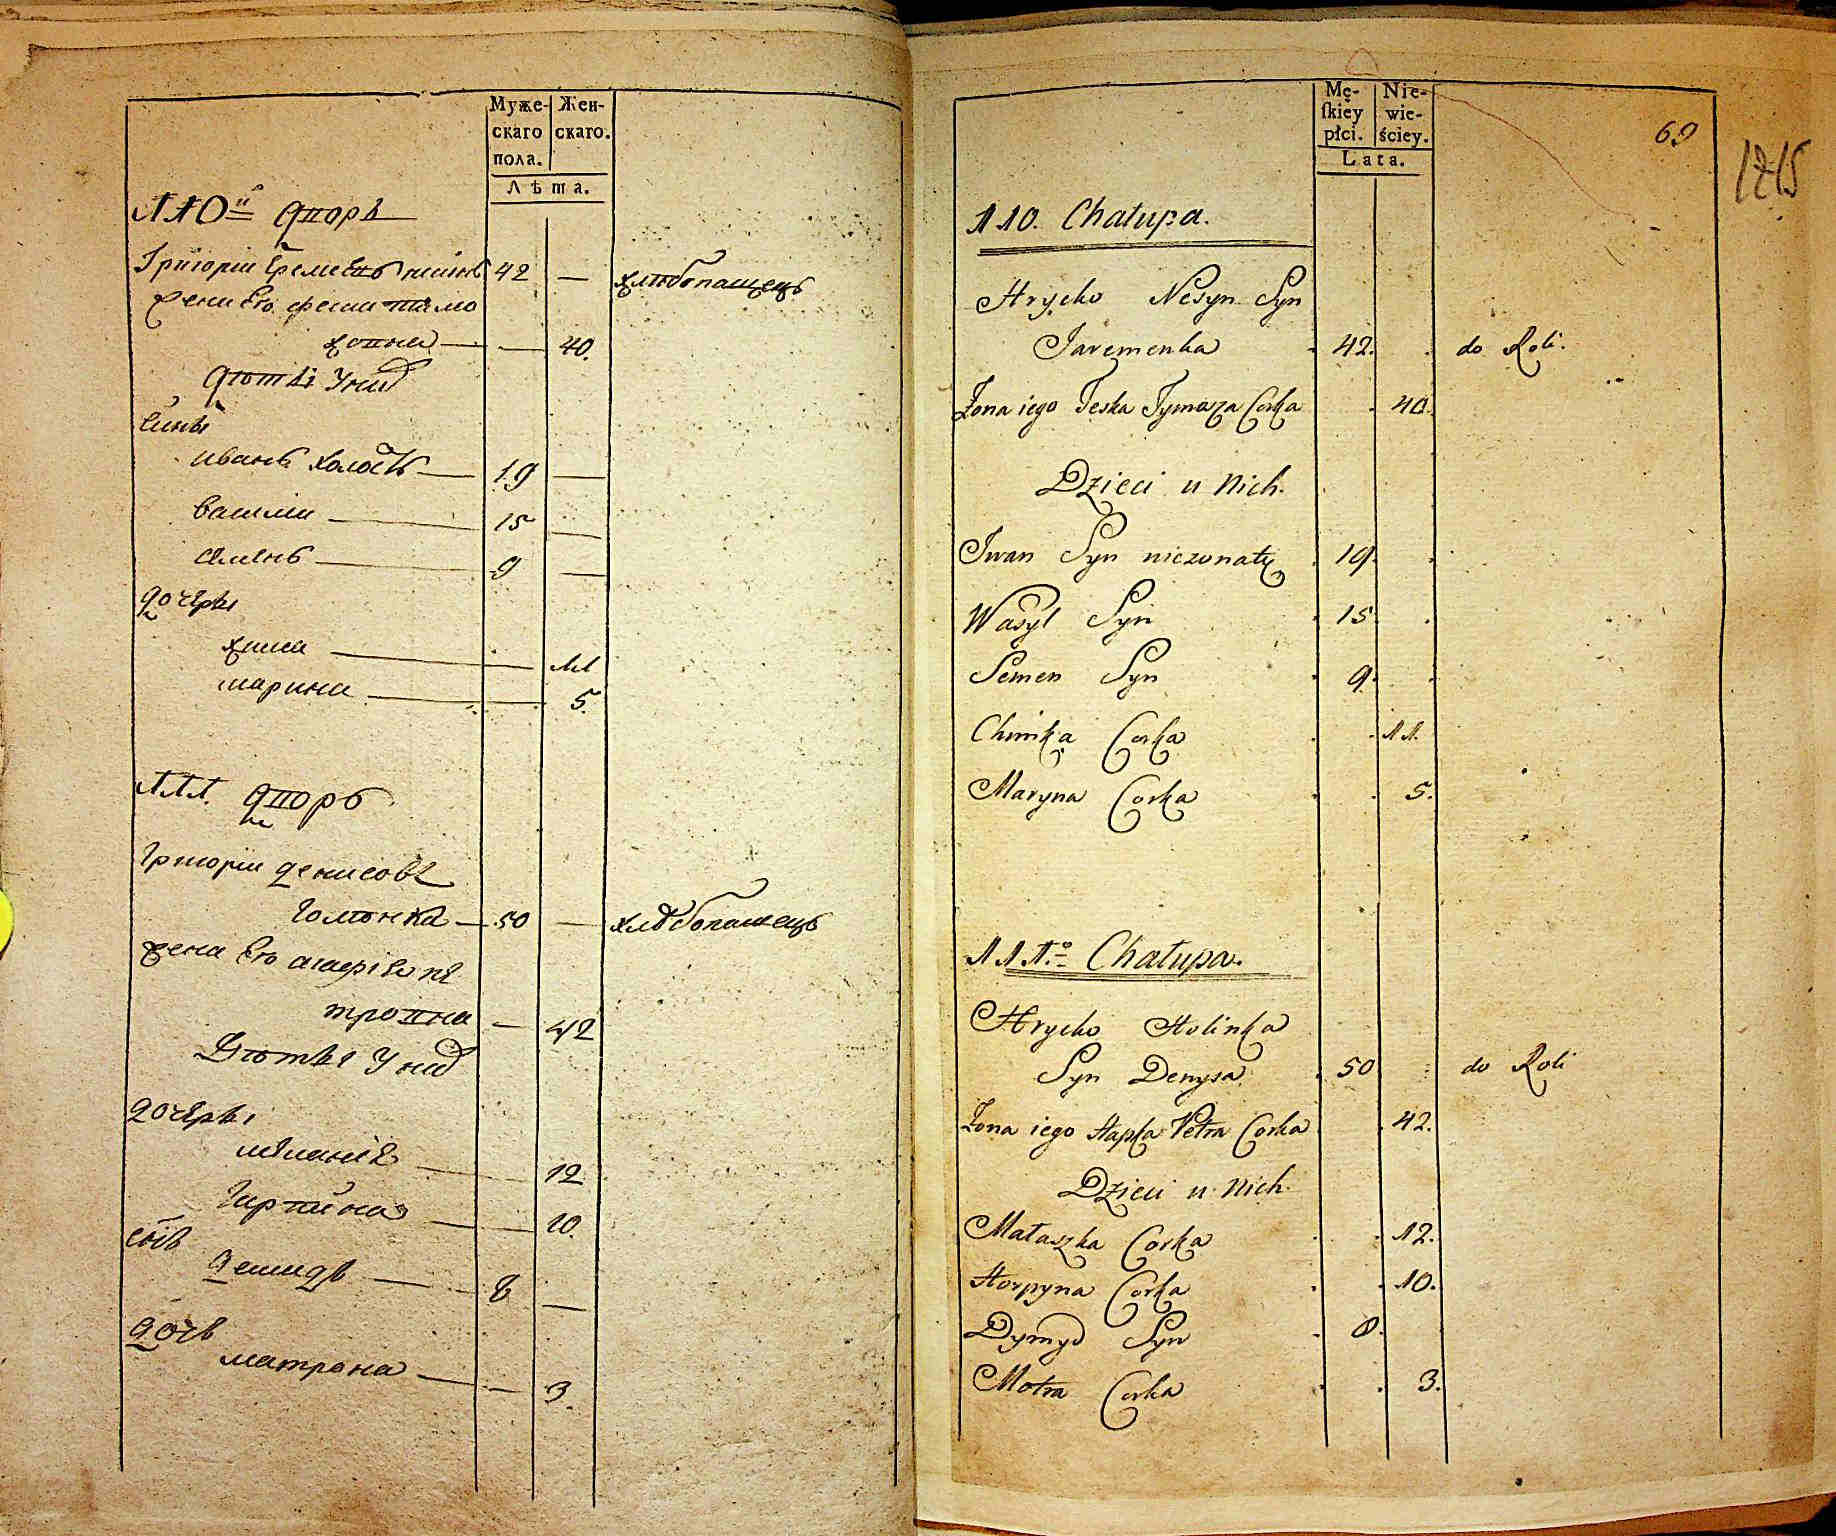 Муже-
скаго
пола.
Жен-
скаго.
Лѣта.
110й дворъ
Григорій 42 — хлѣбопашецъ
жена Его
— — 40.
дѣти У нид
Сины
иванъ холостъ — 19 —
василии — 15 —
семенъ — 9 —
дочеры
химка — 11
марина — 5.
111. дворъ
григории денисовъ
гомонка — 50 — хлѣбопашецъ
жена Его агафія пе
тровна — 42
Дѣти У нид
дочеры
меланія — 12
гарпина — 10.
сынъ
демидъ — 8 —
дочь
матрона — — 3.
Mę-
ſkiey
płci.
Nie-
wie-
ściey.
Lata.
69
1215
110. Chałupa.
Hrycko Nesyn Syn
Jaremenka 42. do Roli.
Żona iego Feska Tymosza Corka 40.
Dzieci u Nich.
Iwan Syn nieżonaty 19.
Wasyl Syn 15.
Semen Syn 9.
Chimka Corka 11.
Maryna Corka 5.
111.o Chałupa.
Hrycko Holinka
Syn Denysa 50 do Roli
Żona iego Hapka Petra Corka 42.
Dzieci u Nich.
Małaszka Corka 12.
Horpyna Corka 10.
Dymyd Syn 8.
Motra Corka 3.